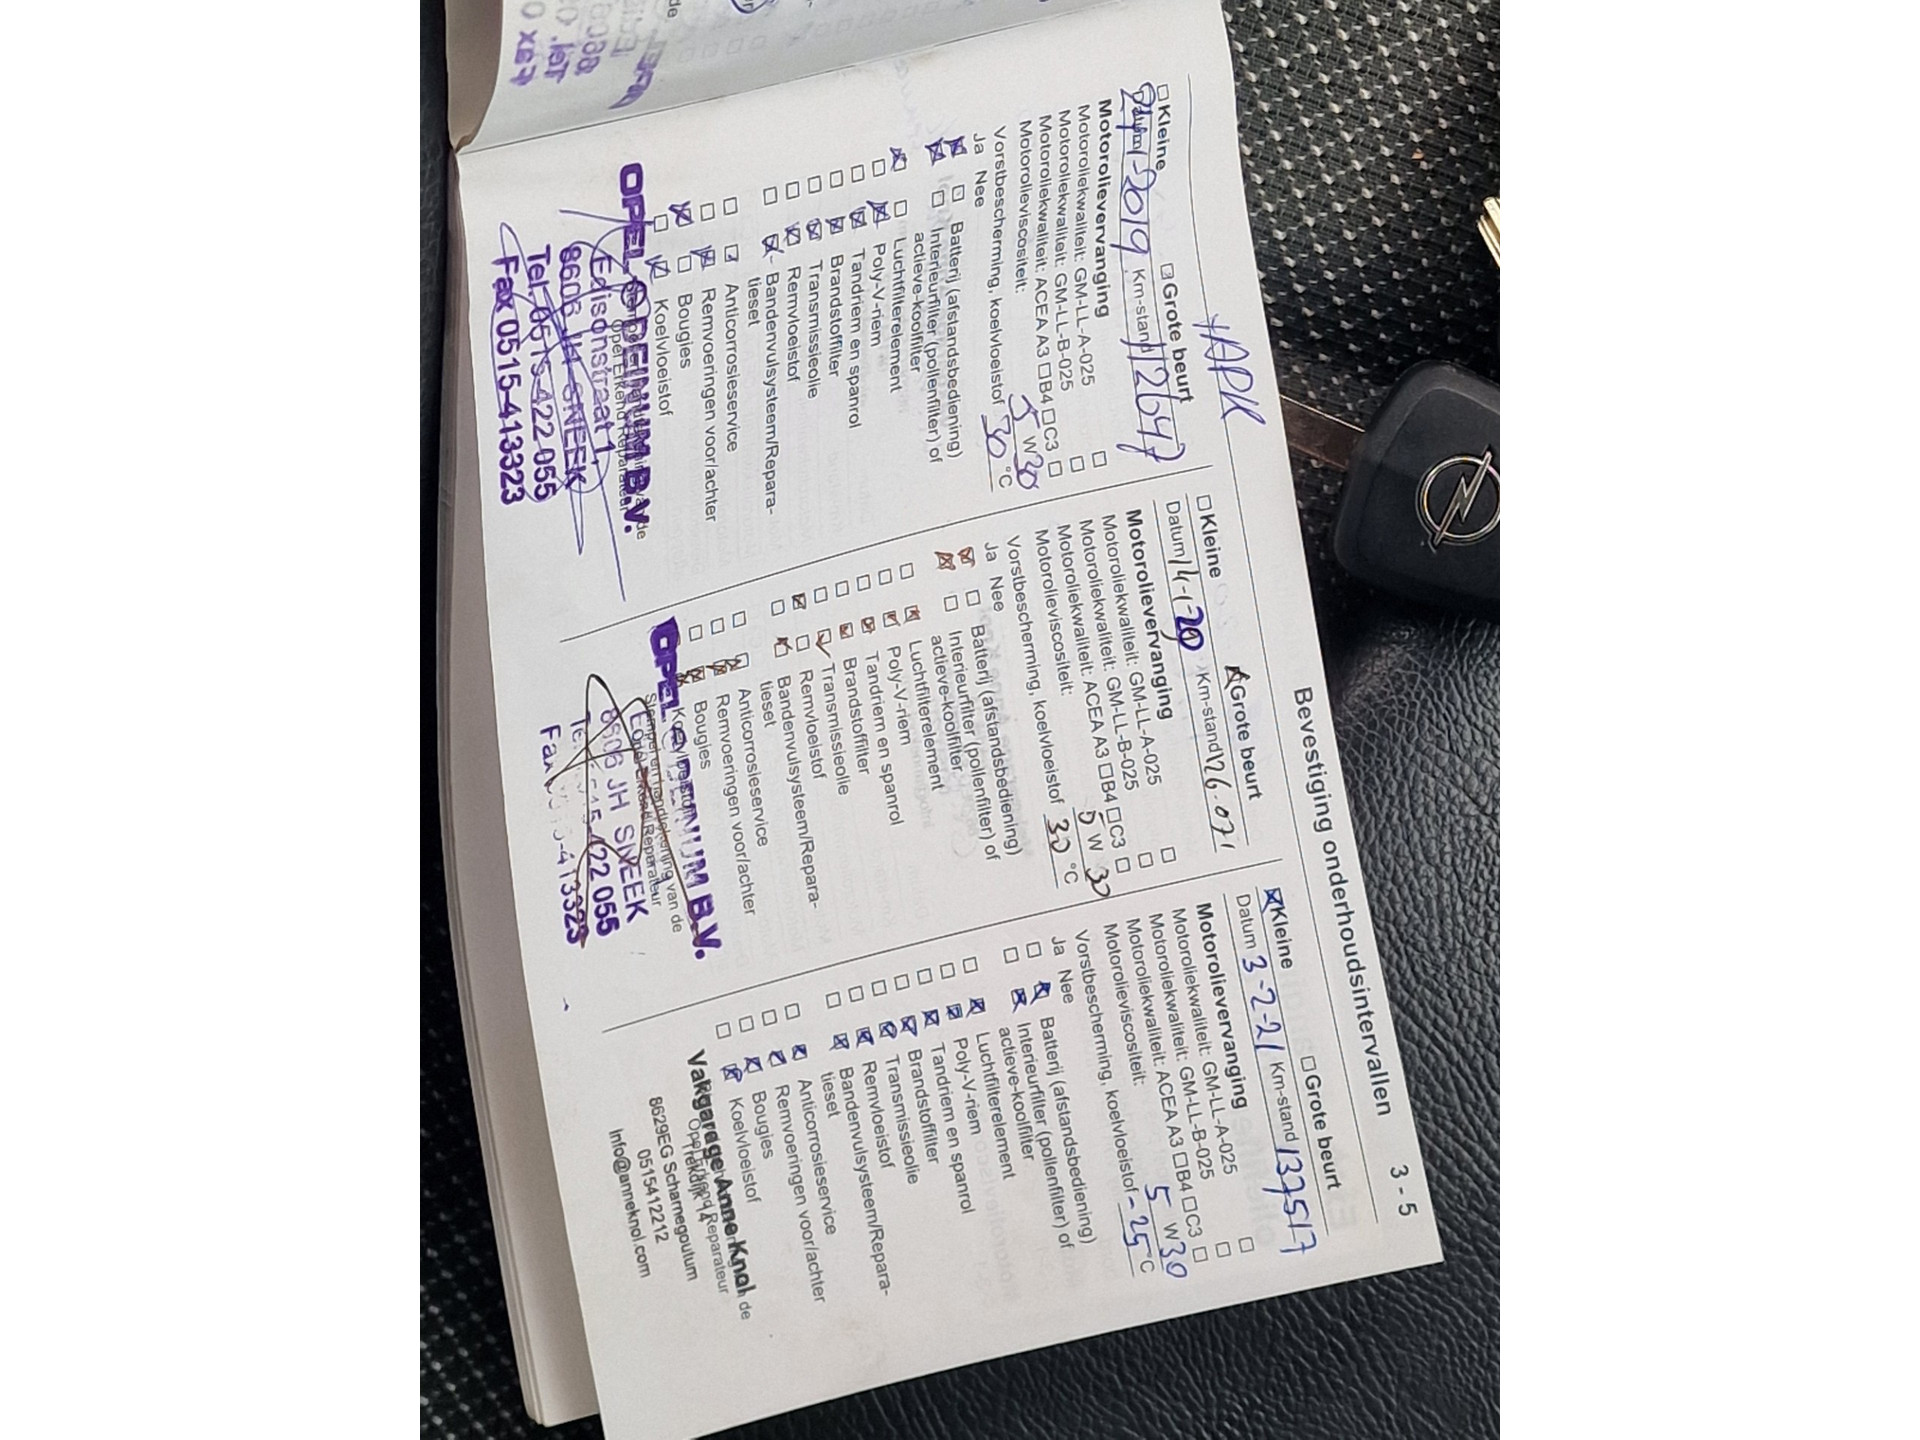 Bevestiging onderhoudsintervallen 3 - 5
+APK
Kleine Grote beurt
2019 Km-stand 112647
Motorolievervanging
Motoroliekwaliteit: GM-LL-A-025
Motoroliekwaliteit: GM-LL-B-025
Motoroliekwaliteit: ACEA A3 B4 C3
Motorolieviscositeit: 5 W 30
Vorstbescherming, koelvloeistof 30 °C
Ja Nee
Batterij (afstandsbediening)
Interieurfilter (pollenfilter) of
actieve-koolfilter
Luchtfilterelement
Poly-V-riem
Tandriem en spanrol
Brandstoffilter
Transmissieolie
Remvloeistof
Bandenvulsysteem/Repara-
tieset
Anticorrosieservice
Remvoeringen voor/achter
Bougies
Koelvloeistof
OPEL DEINUM B.V.
Opel Erkend Reparateur
Edisonstraat 1,
8606 JH SNEEK
Tel. 0515-422 055
Fax 0515-413323
Kleine Grote beurt
Datum 14-1-20 Km-stand 126.071
Motorolievervanging
Motoroliekwaliteit: GM-LL-A-025
Motoroliekwaliteit: GM-LL-B-025
Motoroliekwaliteit: ACEA A3 B4 C3
Motorolieviscositeit: 5 W 30
Vorstbescherming, koelvloeistof 30 °C
Ja Nee
Batterij (afstandsbediening)
Interieurfilter (pollenfilter) of
actieve-koolfilter
Luchtfilterelement
Poly-V-riem
Tandriem en spanrol
Brandstoffilter
Transmissieolie
Remvloeistof
Bandenvulsysteem/Repara-
tieset
Anticorrosieservice
Remvoeringen voor/achter
Bougies
Koelvloeistof
OPEL DEINUM B.V.
Stempel en handtekening van de
Opel Erkend Reparateur
8606 JH SNEEK
Tel. 0515-422 055
Fax 0515-413323
Kleine Grote beurt
Datum 3-2-21 Km-stand 137517
Motorolievervanging
Motoroliekwaliteit: GM-LL-A-025
Motoroliekwaliteit: GM-LL-B-025
Motoroliekwaliteit: ACEA A3 B4 C3
Motorolieviscositeit: 5 W 30
Vorstbescherming, koelvloeistof -25 °C
Ja Nee
Batterij (afstandsbediening)
Interieurfilter (pollenfilter) of
actieve-koolfilter
Luchtfilterelement
Poly-V-riem
Tandriem en spanrol
Brandstoffilter
Transmissieolie
Remvloeistof
Bandenvulsysteem/Repara-
tieset
Anticorrosieservice
Remvoeringen voor/achter
Bougies
Koelvloeistof
Vakgarage Anne Knol
Opel Erkend Reparateur
Trekdijk 14
8629EG Scharnegoutum
0515412212
Info@anneknol.com